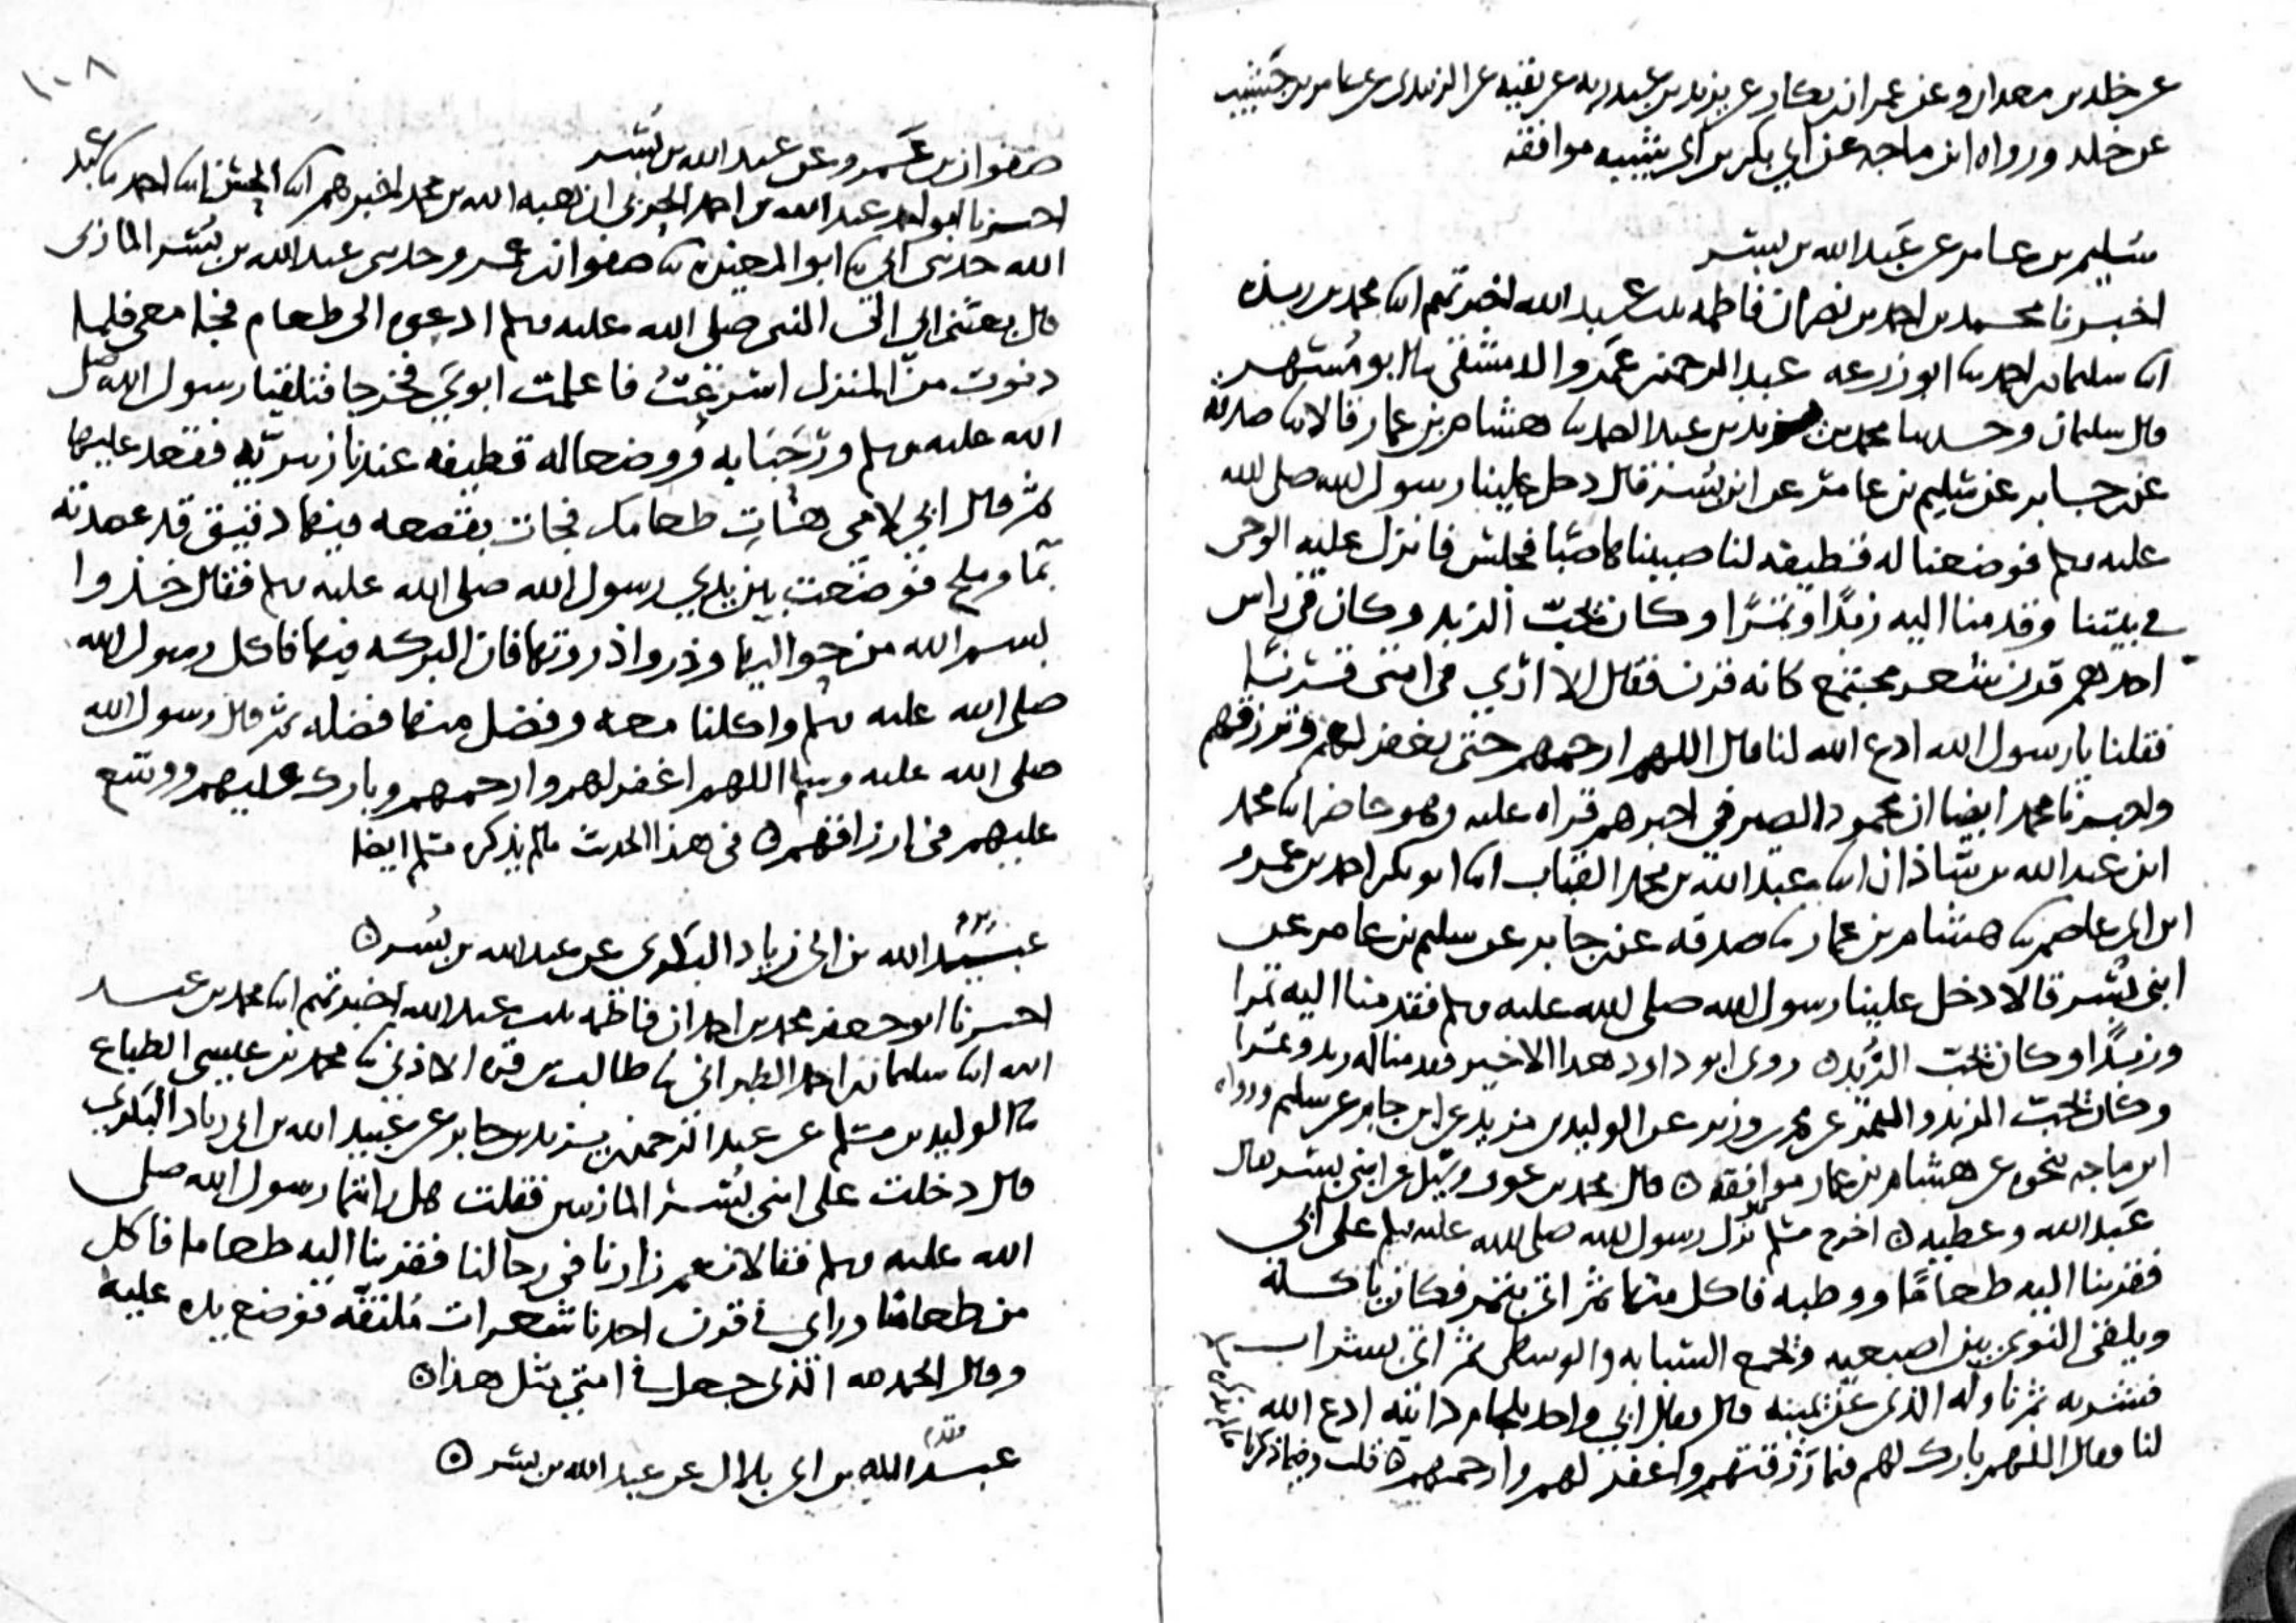 عن خلد بن معدان وعن عمران بكار عن يزيد بن عبد ربه عن بقيه عن الزبيدى عن عامر بن جشيب
عن خلد ورواه ابن ماجه عن ابي بكر بن ابي شيبه موافقه
سُليم بن عامر عن عَبد الله بن بسر
اخبرنا محمد بن احمد بن نصر ان فاطمه بنت عبد الله اخبرتهم ابنا محمد بن ريذه
ابنا سليمان بن احمد ثنا ابو زرعه عبد الرحمن بن عمرو الدمشقى ثنا ابو مُسْهر
قال سليمان وحدثنا محمد بن يزيد بن عبد الصمد ثنا هشام بن عمار قالا ثنا صدقة
عن جابر عن سُليم بن عامر عن ابن بُسر قال دخل علينا رسول الله صلى الله
عليه وسلم فوضعنا له قطيفه لنا صببناها صَبّا فجلس فانزل عليه الوحى
في بيتنا وقدمنا اليه زبدًا وتمرًا وكان يحبّ الزبد وكان في راس
احدهم قرن شعر مجتمع كانه قرن فقال الا ارى فى امتى قرنًا
فقلنا يا رسول الله ادع الله لنا قال اللهم ارحمهم حتى تغفر لهم وترزقهم
واخبرنا محمد ايضا ان محمود الصيرفي اخبرهم قراه عليه وهو حاضر ابنا محمد
ابن عبد الله بن شاذان ابنا عبد الله بن محمد القباب ابنا ابو بكر احمد بن عمرو
ابن ابي عاصم ثنا هشام بن عمار ثنا صدقه عن جابر عن سليم بن عامر عن
ابنى بُسر قالا دخل علينا رسول الله صلى الله عليه وسلم فقدمنا اليه تمرا
وزبدًا وكان يحب الزُبد ه روى ابو داود هذا الاخير قدمنا له زبد وتمرا
وكان يحبّ الزبد والتمر عن محمد بن وزير عن الوليد بن مزيد عن ابن جابر عن سليم ورواه
ابن ماجه نحوه عن هشام بن عمار موافقه ه قال محمد بن عوف وسُئِل عن ابنى بسر قال
عَبد الله وعطيه ه اخرج مسلم نزل رسول الله صلى الله عليه وسلم على ابي
فقربنا اليه طعامًا ووطبه فاكل منها ثم اتى بتمر فكان ياكله
ويلقى النوى بين اصبعيه ويجمع السبابه والوسطى ثم اتى بشراب
فشربه ثم ناوله الذى عن يمينه قال فقال ابي واخذ بلجام دابته ادع الله
لنا فقال اللهم بارك لهم فيما رزقتهم واغفر لهم وارحمهم ه قلت وفيما ذكرنا
ما لم يذكره
١٠٨
صفوان بن عَمرو عن عبد الله بن بُسر
اخبرنا ابو احمد عبد الله بن احمد الحربى ان هبه الله بن محمد اخبرهم ابنا الحسن ابنا احمد ثنا عبد
الله حدثنى ابي ثنا ابو المغيره ثنا صفوان بن عمرو حدثنى عبد الله بن بُسر المازنى
قال بعثنى ابي الى النبى صلى الله عليه وسلم ادعوه الى طعام فجا معى فلما
دنوت من المنزل اسرعْتُ فاعلمت ابويَّ فخرجا فتلقيا رسول الله صلى
الله عليه وسلم ورَحَّبَا به ووضعا له قطيفه عندنا زبيريّه فقعد عليها
ثم قال ابي لامى هَاتِ طعامك فجات بقصعه فيها دقيق قد عصدته
بما وملح فوضعت بين يدي رسول الله صلى الله عليه وسلم فقال خذوا
بسم الله من حواليها وذروا ذروتها فان البركه فيها فاكل رسول الله
صلى الله عليه وسلم واكلنا معه وفضل منها فضله ثم قال رسول الله
صلى الله عليه وسلم اللهم اغفر لهم وارحمهم وبارك عليهم ووسّع
عليهم فى ارزاقهم ه فى هذا الحديث ما لم يذكره مسلم ايضا
عبيد الله بن ابي زياد البكرى عن عبد الله بن بُسر ه
اخبرنا ابو جعفر محمد بن احمد ان فاطمه بنت عبد الله اخبرتهم ابنا محمد بن عبد
الله ابنا سليمان بن احمد الطبرانى ثنا طالب بن قره الاذنى ثنا محمد بن عيسى الطباع
ثنا الوليد بن مسلم عن عبد الرحمن بن يزيد بن جابر عن عبيد الله بن ابي زياد البكرى
قال دخلت على ابنى بُسر المازنيين فقلت هل رايتما رسول الله صلى
الله عليه وسلم فقالا نعم زارنا فى رحالنا فقربنا اليه طعاما فاكل
من طعامنا وراى في قرن احدنا شعرات مُلتفّه فوضع يده عليه
وقال الحمد لله الذى جعل في امتى مثل هذا ه
عبد الله بن ابي بلال عن عبد الله بن بسر ه